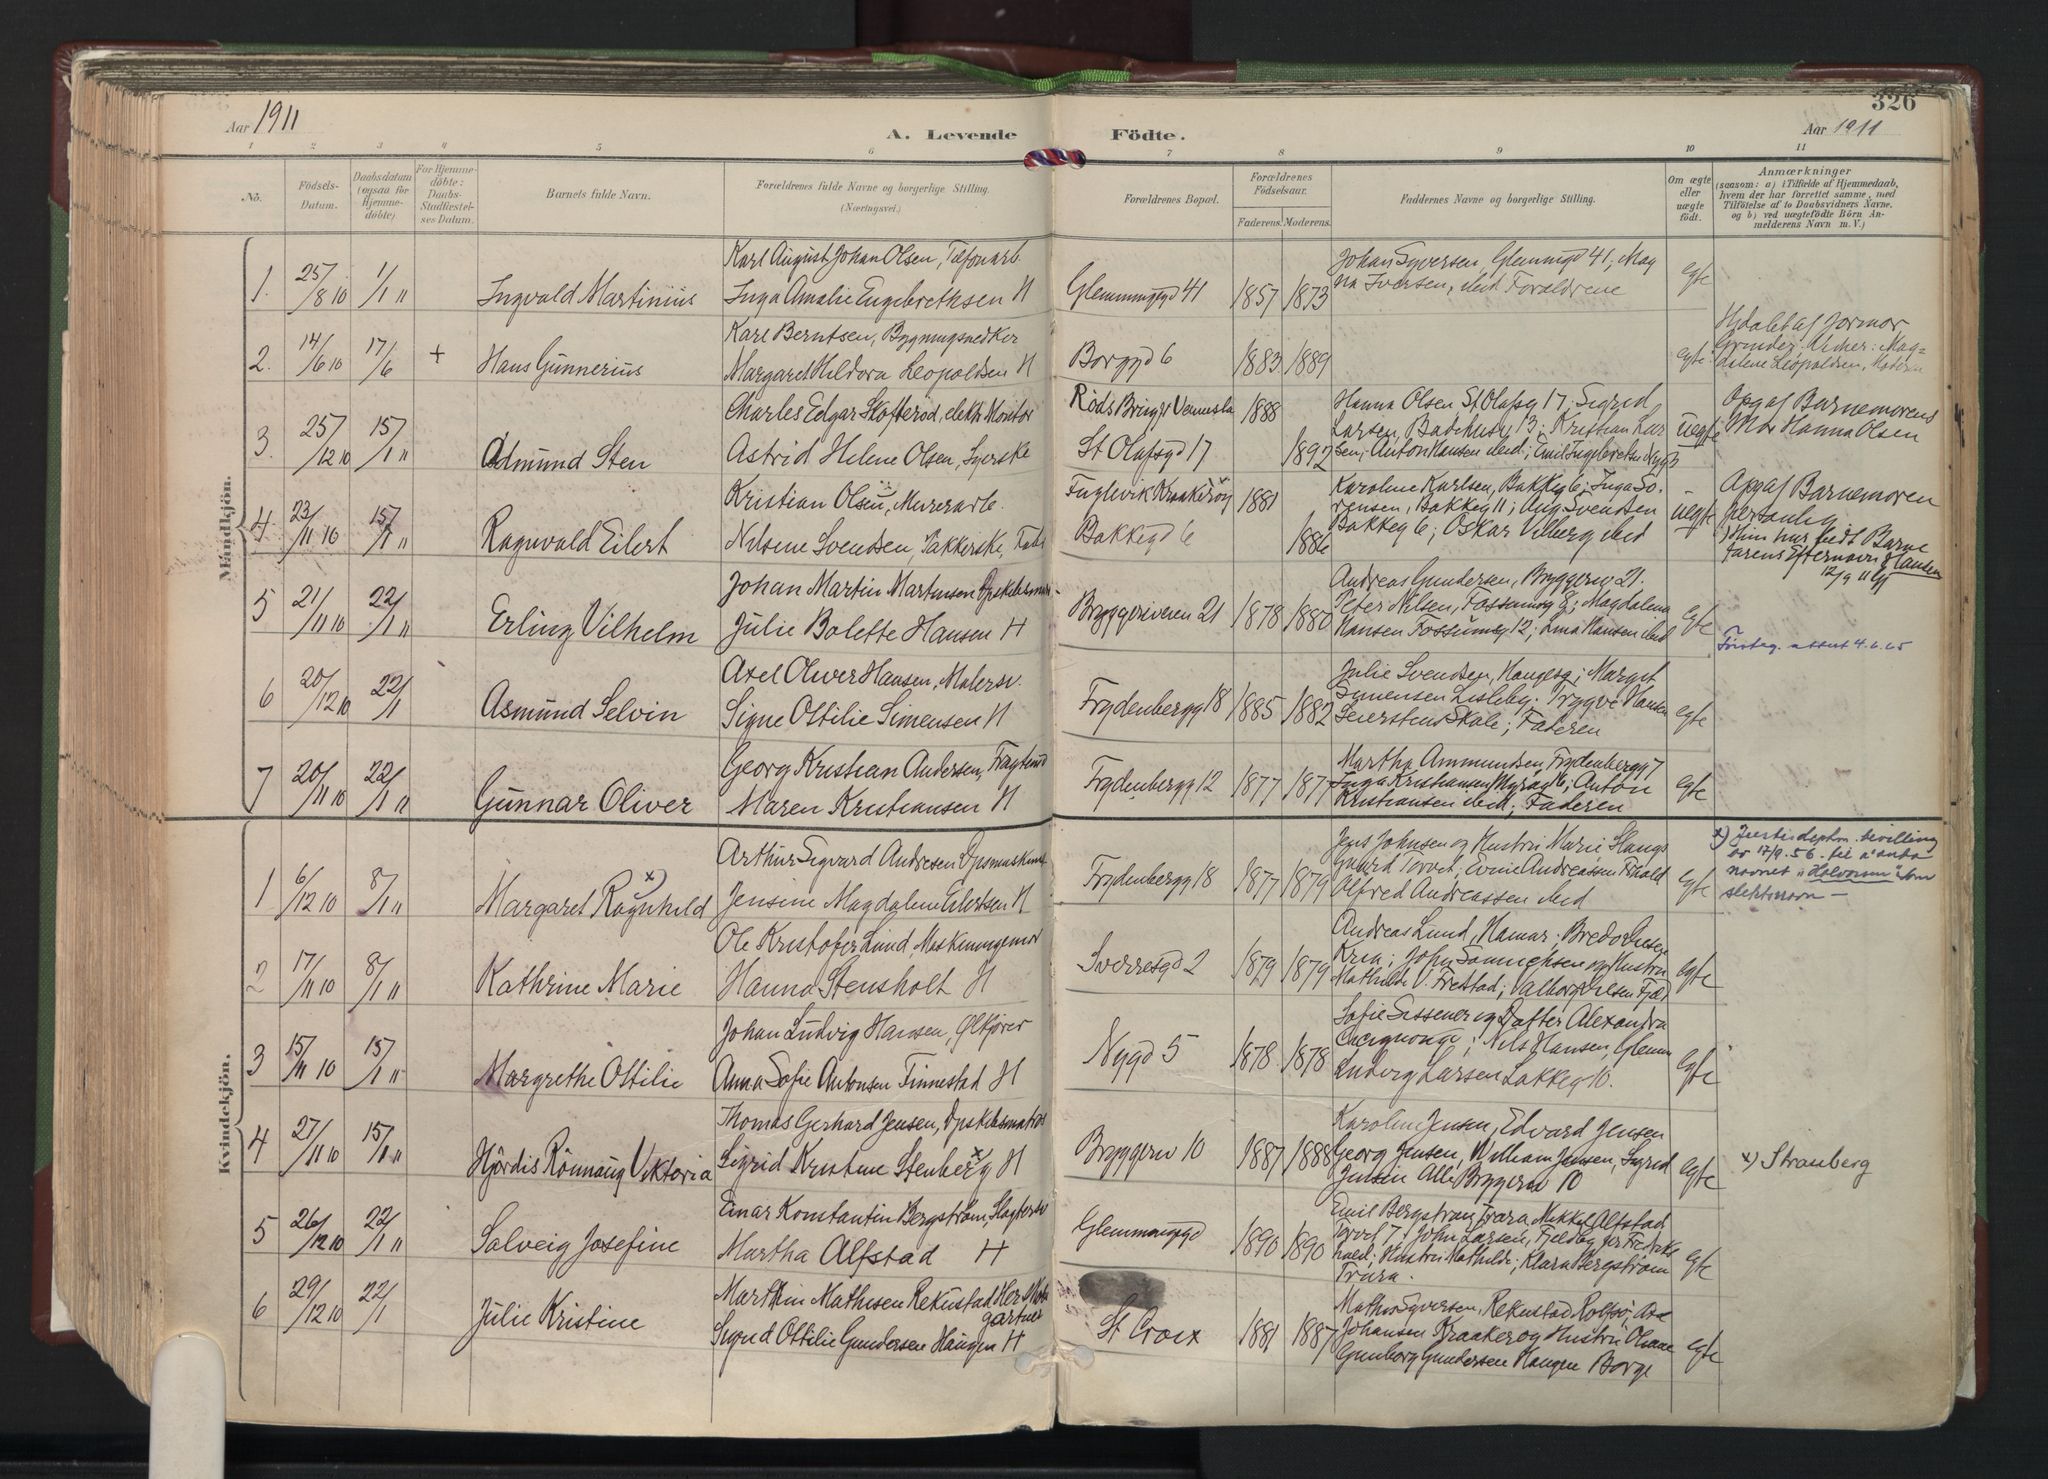 326
Aar 1911
A. Levende
Födte.
Aar 1911
1
2
3
4
5
6
7
8
9
10
11
No.
Födsels-
Datum.
Daabsdatum
(ogsaa för
Hjemme-
döbte)
For Hjemme-
döbte:
Daabs-
Stadfæstel-
ses Datum.
Barnets fulde Navn.
Forældrenes fulde Navne og borgerlige Stilling.
(Næringsvei.)
Forældrenes Bopæl.
Forældrenes
Födselsaar.
Faderens. Moderens.
Faddernes Navne og borgerlige Stilling.
Om ægte
eller
uægte
födt.
Anmærkninger
(saasom: a) i Tilfælde af Hjemmedaab,
hvem der har forrettet samme, med
Tilföielse af to Daabsvidners Navne,
og b) ved uægtefödte Börn An-
melderens Navn m. V.)
Mandkjön.
1. 25/8 10 1/1 11 Ingvald Martinius
Karl August Johan Olsen, Tilfonarb.
Inga Amalie Engebrethsen H
Glemmengd 41 1857 1873
Johan Syversen, Glemmgd 41; Mag
na Iversen, ibid Forældrene
egte
2. 14/6 10 17/6 + Hans Gunnerius
Karl Berntsen, Bygningsnedker
Margaret Hildora Leopoldsen H
Borggd 6 1883 1889
egte
Hjdøbt af Jormor
Magdalene Leopoldsen, Modern
3. 25/12 10 15/1 11 Edmund Sten
Charles Edgar Skofterød, elektr. Montör
Astrid Helene Olsen, Syerske
Röds Brug Vennesla 1888
St Olafsgd 17 1892
Hanna Olsen St Olafsg 17; Sigrid
Larsen, 13; Kristian Lar
sen; Anton Hansen ibid; Emil Ingebretsen Nyg 3
uegte
Opg af Barnemorens
Mor Hanna Olsen
4. 23/11 10 15/1 11 Ragnvald Eilert
Kristian Olsen, Murerarb.
Nilsene Svendsen, Pakkerske, Fabr
Fuglevik Kraakerøy 1881
Bakkegd 6 1886
Karoline Karlsen, Bakkeg 6; Inga Sö-
rensen, Bakkeg 11; Aug Svendsen
Bakkeg 6; Oskar Vilberg ibid
uegte
Opg af Barnemoren
personlig
x) Hun har bedt Barne
farens Efternavn Hansen
12/9 11
5 21/11 10 22/1 11 Erling Vilhelm
Johan Martin Martinsen Dpskibsmat-
Julie Bolette Hansen H
Bryggeriveien 21 1878 1880
Andreas Gundersen, Bryggerv 21.
Peter Nilsen, Fossumsg 8; Magdalena
Hansen Fossumsg 12; Lina Hansen ibid
egte
attest 4.6.65
6 20/12 10 22/1 Asmund Selvin
Axel Oliver Hansen, Malersv.
Signe Ottilie Simensen H
Frydenbergg 18 1885 1882
Julie Svendsen, Haugesg; Margit
Simensen Lisleby; Trygve Hansen
Seierstens Skole; Faderen
egte
7 20/11 10 22/1 11 Gunnar Oliver
Georg Kristian Andersen,
Maren Kristiansen H
Frydenbergg 12 1877 1877
Martha Ammundsen, Frydenbergg 7
Inga Kristiansen Myrag 6; Anton
Kristiansen ibid; Faderen
egte
Kvindekjön.
1 6/12 10 8/1 11 Margaret Ragnhild x)
Arthur Sigvard Andresen Dpsmaskins
Jensine Magdalene Eilertsen H
Frydenbergg 18 1877 1879
Jens Johnsen og Hustru Marie Haugs
gaard Torvet; Evine Andreassen
Alfred Andreassen ibid
egte
x) Justisdeptm. bevilling
av 17/9.56. til å anta
navnet "Halvorsen" som
slektsnavn —
2 17/11 10 8/1 11 Kathrine Marie
Ole Kristofer Lund, Maskiningeniør
Hanna Stensholt H
Sverresgd 2 1879 1879
Andreas Lund, Hamar;
Kria; John Samuelsen og Hustru
Mathilde V. Frestad; Valborg Olsen
egte
3 15/11 10 15/1 11 Margrethe Ottilie
Johan Ludvig Hansen, Ølkjører
Anna Sofie Antonsen Tinnestad H
Nygd 5 1878 1878
Sofie Sissener og Datter Alexandra
Nils Hansen, Glemm
Ludvig Larsen Bakkeg 10.
egte
4 27/11 10 15/1 11 Hjördis Rönnaug Viktoria
Thomas Gerhard Jensen, Dpskibsmatros
Sigrid Kristine Stenberg x) H
Bryggerv 10 1887 1888
Karoline Jensen, Edvard Jensen
Georg Jensen, William Jensen, Sigrid
Jensen Alle Bryggerv 10
egte
x) Strassberg
5 26/12 10 22/1 11 Solveig Josefine
Einar Konstantin Bergström, Slagtersv
Martha Alfstad H
Glemmengd 1890 1890
Emil Bergström, Trara, Mikkel Alfstad
Torvet 7; John Larsen,
Hustru Mathilde; Klara Bergström
Trara.
egte
6 29/12 10 22/1 Julie Kristine
Marthin Mathisen Rekustad
gartner
Sigrid Ottilie Gundersen Haugen H
St Croix 1881 1887
Mathis Syversen, Rekustad Rolfsø;
Johansen Kraakerøy Hustru
Gunborg Gundersen Haugen Borge
egte